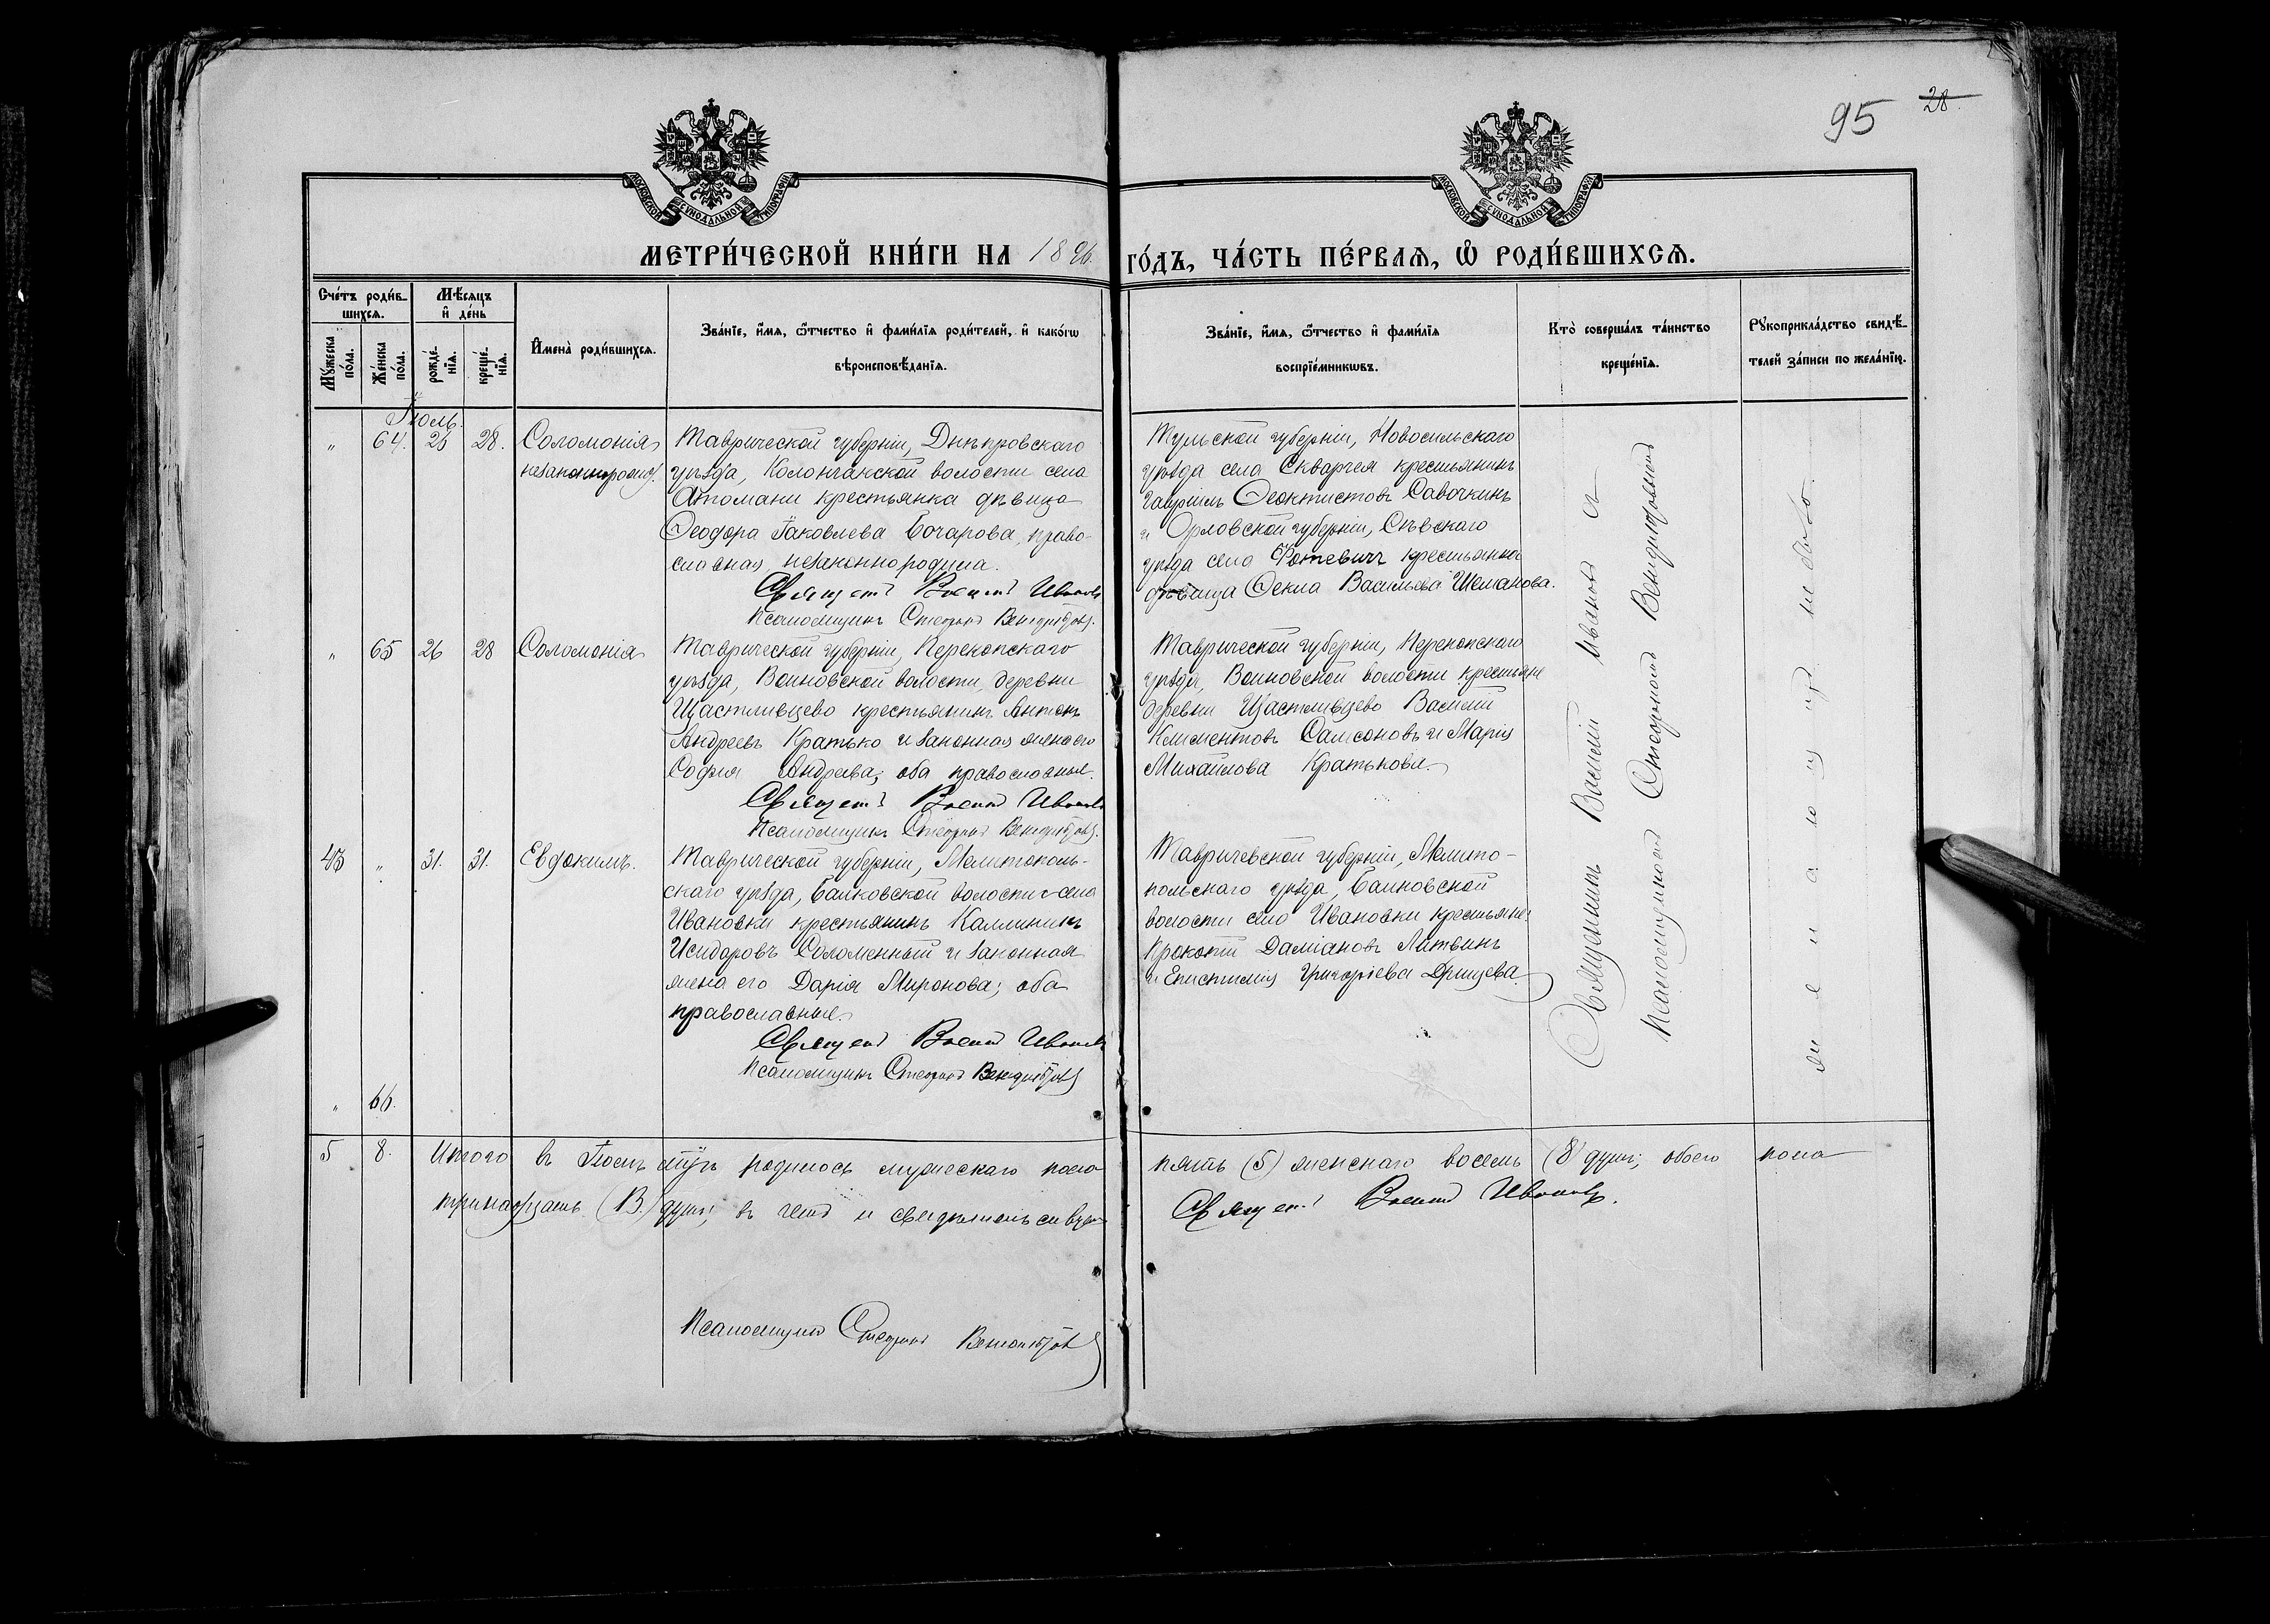 95 28.
МОСКОВСКОЙ СѴНОДАЛЬНОЙ ТИПОГРАФІИ
МОСКОВСКОЙ СѴНОДАЛЬНОЙ ТИПОГРАФІИ
МЕТРИ́ЧЕСКОЙ КНИ́ГИ НА 1896. ГО́ДЪ, ЧА́СТЬ ПЕ́РВАЯ, Ѽ РОДИ́ВШИХСЯ.
Сче́тъ роди́в-
шихся.
Мѣ́сяцъ
и҆ де́нь
Му́жеска
по́ла.
Же́нска
по́ла.
рожде́-
нїя.
креще́-
нїя.
И҆мена̀ роди́вшихся.
Зва́нїе, и҆́мя, ѻ҆́тчество и҆ фами́лїя роди́телей, и҆ како́гѡ
вѣроисповѣ́данїя.
Зва́нїе, и҆́мя, ѻ҆́тчество и҆ фами́лїя
воспрїе́мникѡвъ.
Кто̀ соверша́лъ та́инство
креще́нїя.
Рꙋкоприкла́дство свидѣ́-
телей за́писи по жела́нїю.
Іюль.
" 64. 26 28. Соломонія,
незаконнорожд.
Таврической губерніи, Днѣпровскаго
уѣзда, Колончакской волости села
Атомани крестьянка дѣвица
Ѳеодора Іаковлева Бочарова, право-
славная, незаконнородила.
Священ. Василій Ивановъ
Псаломщикъ Стефанъ Бенедиктовъ.
Тульской губерніи, Новосильскаго
уѣзда села Скварчея крестьянинъ
Гавріилъ Ѳеоктистовъ Савочкинъ
и Орловской губерніи, Сѣвскаго
уѣзда села Фотевичъ крестьянка
дѣвица Ѳекла Васильева Шеманова.
" 65 26 28 Соломонія
Таврической губерніи, Перекопскаго
уѣзда, Воиновской волости, деревни
Щастливцево крестьянинъ Антонъ
Андреевъ Кратько и законная жена его
Софія Андреева; оба православные.
Священ. Василій Ивановъ
Псаломщикъ Стефанъ Бенедиктовъ.
Таврической губерніи, Перекопскаго
уѣзда, Воиновской волости крестьяне
деревни Щастливцево Василій
Климентовъ Самсоновъ и Марія
Михайлова Кратькова.
43 " 31. 31. Евдокимъ.
Таврической губерніи, Мелитополь-
скаго уѣзда, Балковской волости села
Ивановки крестьянинъ Каллиникъ
Исидоровъ Соломенный и законная
жена его Дарія Миронова; оба
православные.
Священ. Василій Ивановъ
Псаломщикъ Стефанъ Бенедиктовъ
Тавричевской губерніи, Мелито-
польскаго уѣзда, Балковской
волости села Ивановки крестьяне:
Прокопій Даміановъ Литвинъ
и Епистимія Григоріева Дрищева.
Священникъ Василій Ивановъ съ
Псаломщикомъ Стефаномъ Бенедиктовымъ
желающихъ не было.
" 66.
5 8. Итого въ Іюлѣ мцѣ родилось мужескаго пола пять (5) женскаго восемь (8) душъ, обоего пола
тринадцать (13) душъ, въ чемъ и свидѣтельствуемъ Священ. Василій Ивановъ.
Псаломщикъ Стефанъ Бенедиктовъ